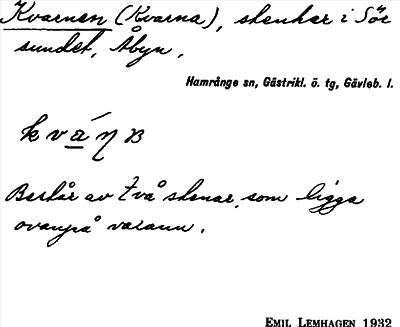 Kvarnen (Kvarna), stenkar i Sör
sundet, Åbyn.
Hamrånge sn, Gästrikl. ö. tg, Gävleb. l.
Består av två stenar, som ligga
ovanpå varann.
EMIL LEMHAGEN 1932